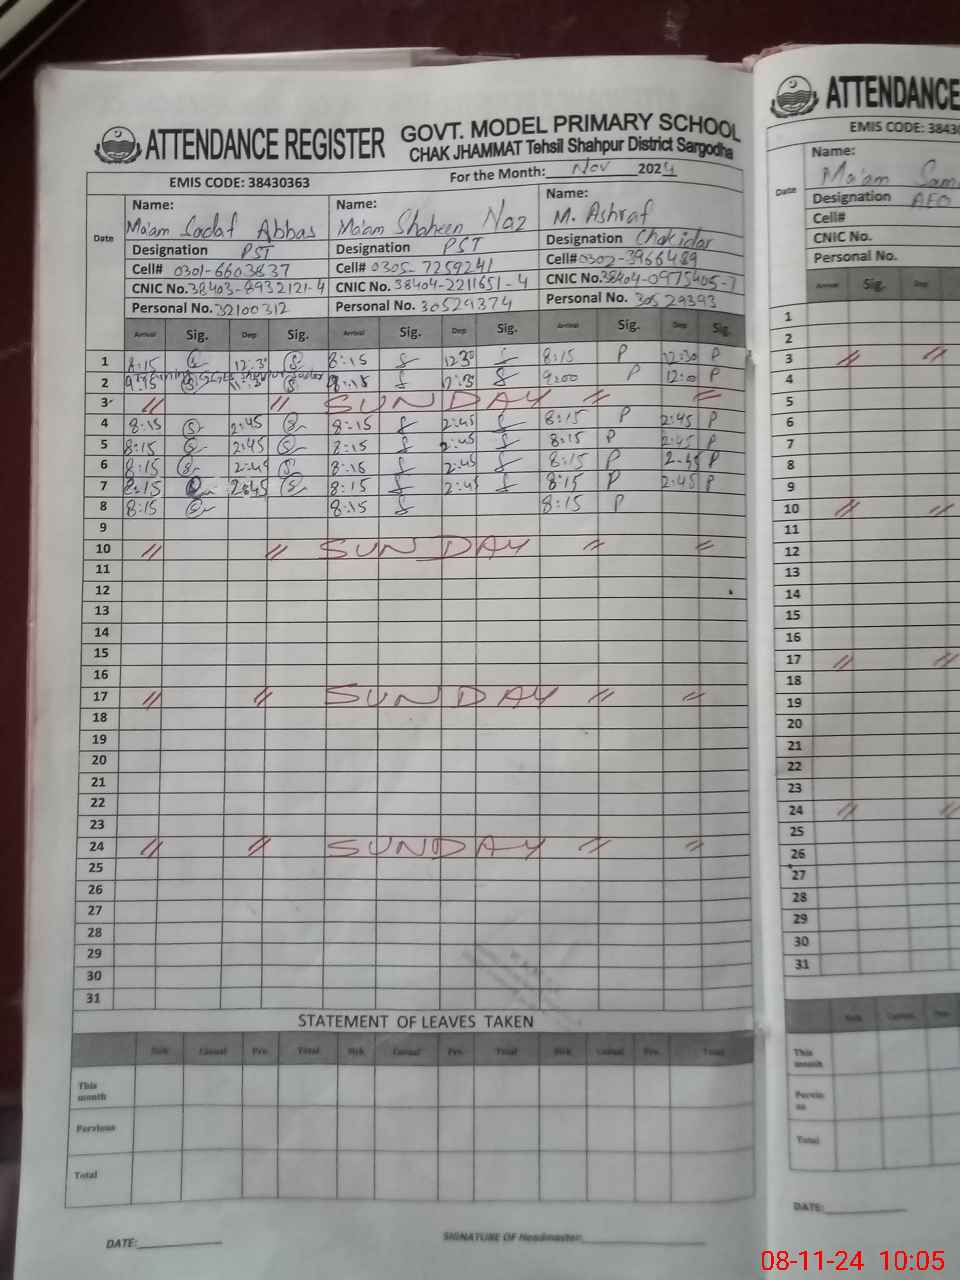 ATTENDANCE REGISTER
GOVT. MODEL PRIMARY SCHOOL
CHAK JHAMMAT Tehsil Shahpur District Sargodha
EMIS CODE: 38430363
For the Month: Nov 2024
Date
Name: Name: Name:
Ma'am Sadaf Abbas Ma'am Shaheen Naz M. Ashraf
Designation PST Designation PST Designation Chokidar
Cell# 0301-6603837 Cell# 0305-7259241 Cell# 0302-3966489
CNIC No. 38403-8932121-4 CNIC No. 38404-2211651-4 CNIC No. 38404-0975405-7
Personal No. 32100312 Personal No. 30529374 Personal No. 30529393
Arrival Sig. Dep Sig. Arrival Sig. Dep Sig. Arrival Sig. Dep Sig.
1 8:15 12:30 8:15 12:30 8:15 P 12:30 P
2 9:00 P P
3 // // SUNDAY // //
4 8:15 2:45 8:15 2:45 8:15 P 2:45 P
5 8:15 2:45 8:15 2:45 8:15 P 2:45 P
6 8:15 2:45 8:15 2:45 8:15 P 2:45 P
7 8:15 2:45 8:15 2:45 8:15 P 2:45 P
8 8:15 8:15 8:15 P
9
10 // // SUNDAY // //
11
12
13
14
15
16
17 // // SUNDAY // //
18
19
20
21
22
23
24 // // SUNDAY // //
25
26
27
28
29
30
31
STATEMENT OF LEAVES TAKEN
Sick Casual Prv. Total Sick Casual Prv. Total Sick Casual Prv. Total
This month
Pervious
Total
DATE:
SIGNATURE OF Headmaster:
ATTENDANCE
EMIS CODE: 3843
Date
Name:
Ma'am Sam
Designation AEO
Cell#
CNIC No.
Personal No.
Arrival Sig. Dep
1
2
3 // //
4
5
6
7
8
9
10 // //
11
12
13
14
15
16
17 // //
18
19
20
21
22
23
24 // //
25
26
27
28
29
30
31
Sick Casual Prv.
This month
Pervious
Total
DATE:
08-11-24 10:05